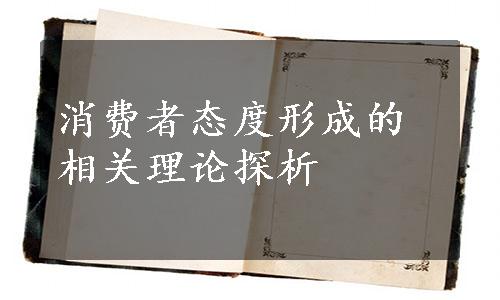 消费者态度形成的
相关理论探析